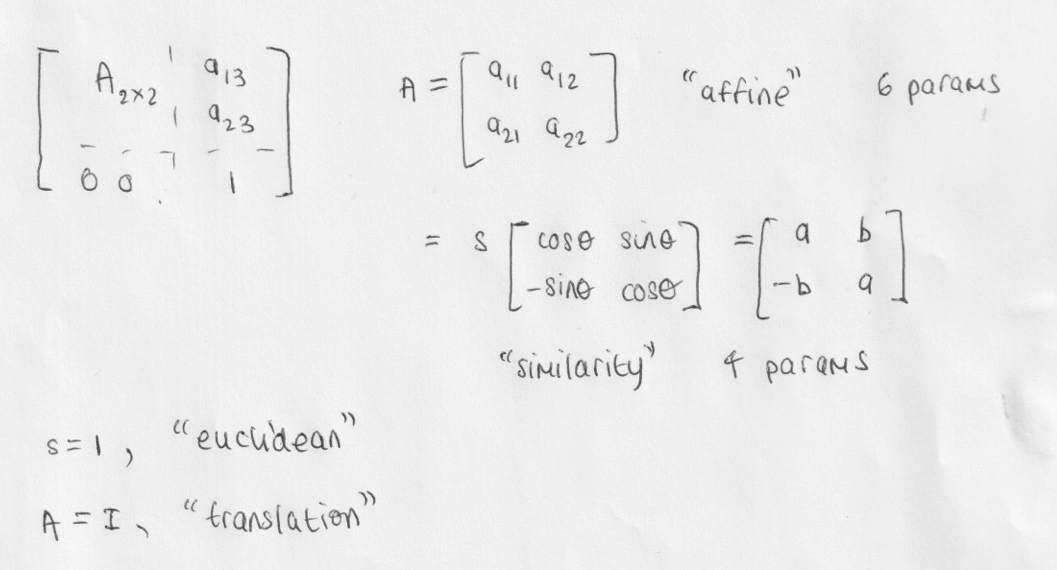 [ A₂ₓ₂ | a₁₃
| a₂₃
0 0 1 ]
A = [ a₁₁ a₁₂
a₂₁ a₂₂ ] “affine” 6 params
= s [ cosθ sinθ
-sinθ cosθ ] = [ a b
-b a ]
“similarity” 4 params
s = 1, “euclidean”
A = I, “translation”